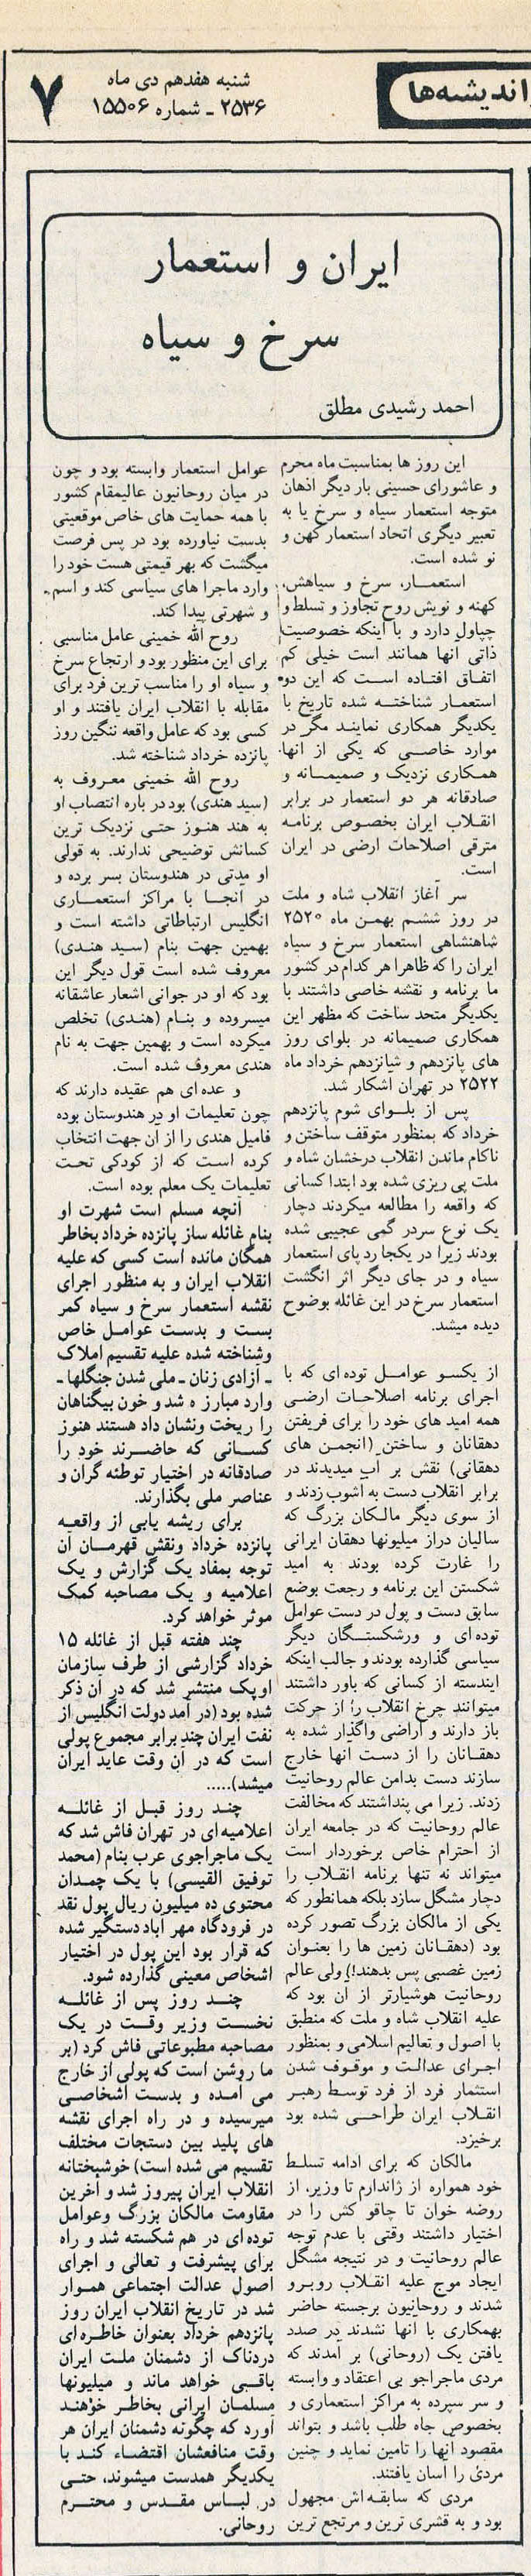 اندیشه‌ها
شنبه هفدهم دی ماه
۲۵۳۶ ـ شماره ۱۵۵۰۶
۷
ایران و استعمار
سرخ و سیاه
احمد رشیدی مطلق
این روز ها بمناسبت ماه محرم
و عاشورای حسینی بار دیگر اذهان
متوجه استعمار سیاه و سرخ یا به
تعبیر دیگری اتحاد استعمار کهن و
نو شده است.
استعمـار، سرخ و سیاهش،
کهنه و نویش روح تجاوز و تسلط و
چپاول دارد و با اینکه خصوصیت
ذاتی آنها همانند است خیلی کم
اتفـاق افتـاده اسـت که این دو
استعمـار شناختـه شده تاریخ با
یکدیگر همکاری نماینـد مگر در
موارد خاصـی که یکی از آنها
همکاری نزدیک و صمیمـانه و
صادقانه هر دو استعمار در برابر
انقـلاب ایران بخصـوص برنامـه
مترقی اصلاحات ارضی در ایران
است.
سر آغاز انقلاب شاه و ملت
در روز ششـم بهمـن ماه ۲۵۲۰
شاهنشاهی استعمار سرخ و سیاه
ایران را که ظاهرا هر کدام در کشور
ما برنامه و نقشه خاصی داشتند با
یکدیگر متحد ساخت که مظهر این
همکاری صمیمانه در بلوای روز
های پانزدهم و شانزدهم خرداد ماه
۲۵۲۲ در تهران آشکار شد.
پس از بلـوای شوم پانزدهم
خرداد که بمنظور متوقف ساختن و
ناکام ماندن انقلاب درخشان شاه و
ملت پی ریزی شده بود ابتدا کسانی
که واقعه را مطالعه میکردند دچار
یک نوع سردر گمی عجیبی شده
بودند زیرا در یکجا رد پای استعمار
سیاه و در جای دیگر اثر انگشت
استعمار سرخ در این غائله بوضوح
دیده میشد.
از یکسو عوامـل توده ای که با
اجرای برنامه اصلاحـات ارضـی
همه امید های خود را برای فریفتن
دهقانان و ساختن (انجمـن های
دهقانی) نقش بر آب میدیدند در
برابر انقلاب دست به آشوب زدند و
از سوی دیگر مالـکان بزرگ که
سالیان دراز میلیونها دهقان ایرانی
را غارت کرده بودند به امید
شکستن این برنامه و رجعت بوضع
سابق دست و پول در دست عوامل
توده ای و ورشکستـگان دیگر
سیاسی گذارده بودند و جالب اینکه
ایندسته از کسانی که باور داشتند
میتوانند چرخ انقلاب را از حرکت
باز دارند و اراضی واگذار شده به
دهقـانان را از دست آنها خارج
سازند دست بدامن عالم روحانیت
زدند. زیرا می پنداشتند که مخالفت
عالم روحانیت که در جامعه ایران
از احترام خاص برخوردار است
میتواند نه تنها برنامه انقـلاب را
دچار مشگل سازد بلکه همانطور که
یکی از مالکان بزرگ تصور کرده
بود (دهقـانان زمین ها را بعنـوان
زمین غصبی پس بدهند!) ولی عالم
روحانیت هوشیارتر از آن بود که
علیه انقلاب شاه و ملت که منطبق
با اصول و تعالیم اسلامی و بمنظور
اجـرای عدالـت و موقـوف شدن
استثمار فرد از فرد توسـط رهبـر
انقـلاب ایران طراحـی شده بود
برخیزد.
مالکان که برای ادامه تسلـط
خود همواره از ژاندارم تا وزیر، از
روضه خوان تا چاقو کش را در
اختیار داشتند وقتی با عدم توجه
عالم روحانیت و در نتیجه مشگل
ایجاد موج علیه انقـلاب روبـرو
شدند و روحانیون برجسته حاضر
بهمکاری با آنها نشدند در صدد
یافتن یک (روحانی) بر آمدند که
مردی ماجراجو بی اعتقاد و وابسته
و سر سپرده به مراکز استعماری و
بخصوص جاه طلب باشد و بتواند
مقصود آنها را تامین نماید و چنین
مردی را آسان یافتند.
مردی که سابقـه‌اش مجهول
بود و به قشری ترین و مرتجع ترین
عوامل استعمار وابسته بود و چون
در میان روحانیون عالیمقام کشور
با همه حمایت های خاص موقعیتی
بدست نیاورده بود در پس فرصت
میگشت که بهر قیمتی هست خود را
وارد ماجرا های سیاسی کند و اسم
و شهرتی پیدا کند.
روح الله خمینی عامل مناسبی
برای این منظور بود و ارتجاع سرخ
و سیاه او را مناسب ترین فرد برای
مقابله با انقلاب ایران یافتند و او
کسی بود که عامل واقعه ننگین روز
پانزده خرداد شناخته شد.
روح الله خمینی معـروف به
(سید هندی) بود در باره انتصاب او
به هند هنـوز حتـی نزدیک ترین
کسانش توضیحی ندارند. به قولی
او مدتی در هندوستان بسر برده و
در آنجـا با مراکز استعمـاری
انگلیس ارتباطاتی داشته است و
بهمین جهت بنام (سـید هنـدی)
معروف شده است قول دیگر این
بود که او در جوانی اشعار عاشقانه
میسروده و بنـام (هنـدی) تخلص
میکرده است و بهمین جهت به نام
هندی معروف شده است.
و عده ای هم عقیده دارند که
چون تعلیمات او در هندوستان بوده
فامیل هندی را از آن جهت انتخاب
کرده اسـت که از کودکی تحـت
تعلیمات یک معلم بوده است.
آنچه مسلم است شهرت او
بنام غائله ساز پانزده خرداد بخاطر
همگان مانده است کسی که علیه
انقلاب ایران و به منظور اجرای
نقشه استعمار سرخ و سیاه کمر
بسـت و بدست عوامـل خاص
وشناخته شده علیه تقسیم املاک
ـ آزادی زنان ـ ملی شدن جنگلها ـ
وارد مبارز ه شد و خون بیگناهان
را ریخت ونشان داد هستند هنوز
کسـانی که حاضـرند خود را
صادقانه در اختیار توطئه گران و
عناصر ملی بگذارند.
برای ریشه یابی از واقعـه
پانزده خرداد ونقش قهرمـان آن
توجه بمفاد یک گزارش و یک
اعلامیه و یک مصاحبه کمک
موثر خواهد کرد.
چند هفته قبل از غائله ۱۵
خرداد گزارشی از طرف سازمان
اوپک منتشر شد که در آن ذکر
شده بود (در آمد دولت انگلیس از
نفت ایران چند برابر مجموع پولی
است که در آن وقت عاید ایران
میشد).....
چنـد روز قبـل از غائلـه
اعلامیه‌ای در تهران فاش شد که
یک ماجراجوی عرب بنام (محمد
توفیق القیسی) با یک چمـدان
محتوی ده میلیون ریال پول نقد
در فرودگاه مهر آباد دستگیر شده
که قرار بود این پول در اختیار
اشخاص معینی گذارده شود.
چنـد روز پس از غائلـه
نخسـت وزیر وقـت در یک
مصاحبه مطبوعاتی فاش کرد (بر
ما روشن است که پولی از خارج
می آمـده و بدست اشخاصـی
میرسیده و در راه اجرای نقشه
های پلید بین دستجات مختلف
تقسیم می شده است) خوشبختانه
انقلاب ایران پیروز شد و آخرین
مقاومت مالکان بزرگ وعوامل
توده‌ای در هم شکسته شد و راه
برای پیشرفت و تعالی و اجرای
اصول عدالت اجتماعی همـوار
شد در تاریخ انقلاب ایران روز
پانزدهم خرداد بعنوان خاطـره‌ای
دردناک از دشمنان ملـت ایران
باقـی خواهد ماند و میلیونها
مسلمـان ایرانی بخاطـر خوهنـد
آورد که چگونه دشمنان ایران هر
وقت منافعشان اقتضـاء کنـد با
یکدیگر همدست میشوند، حتـی
در لبـاس مقـدس و محتـرم
روحانی.